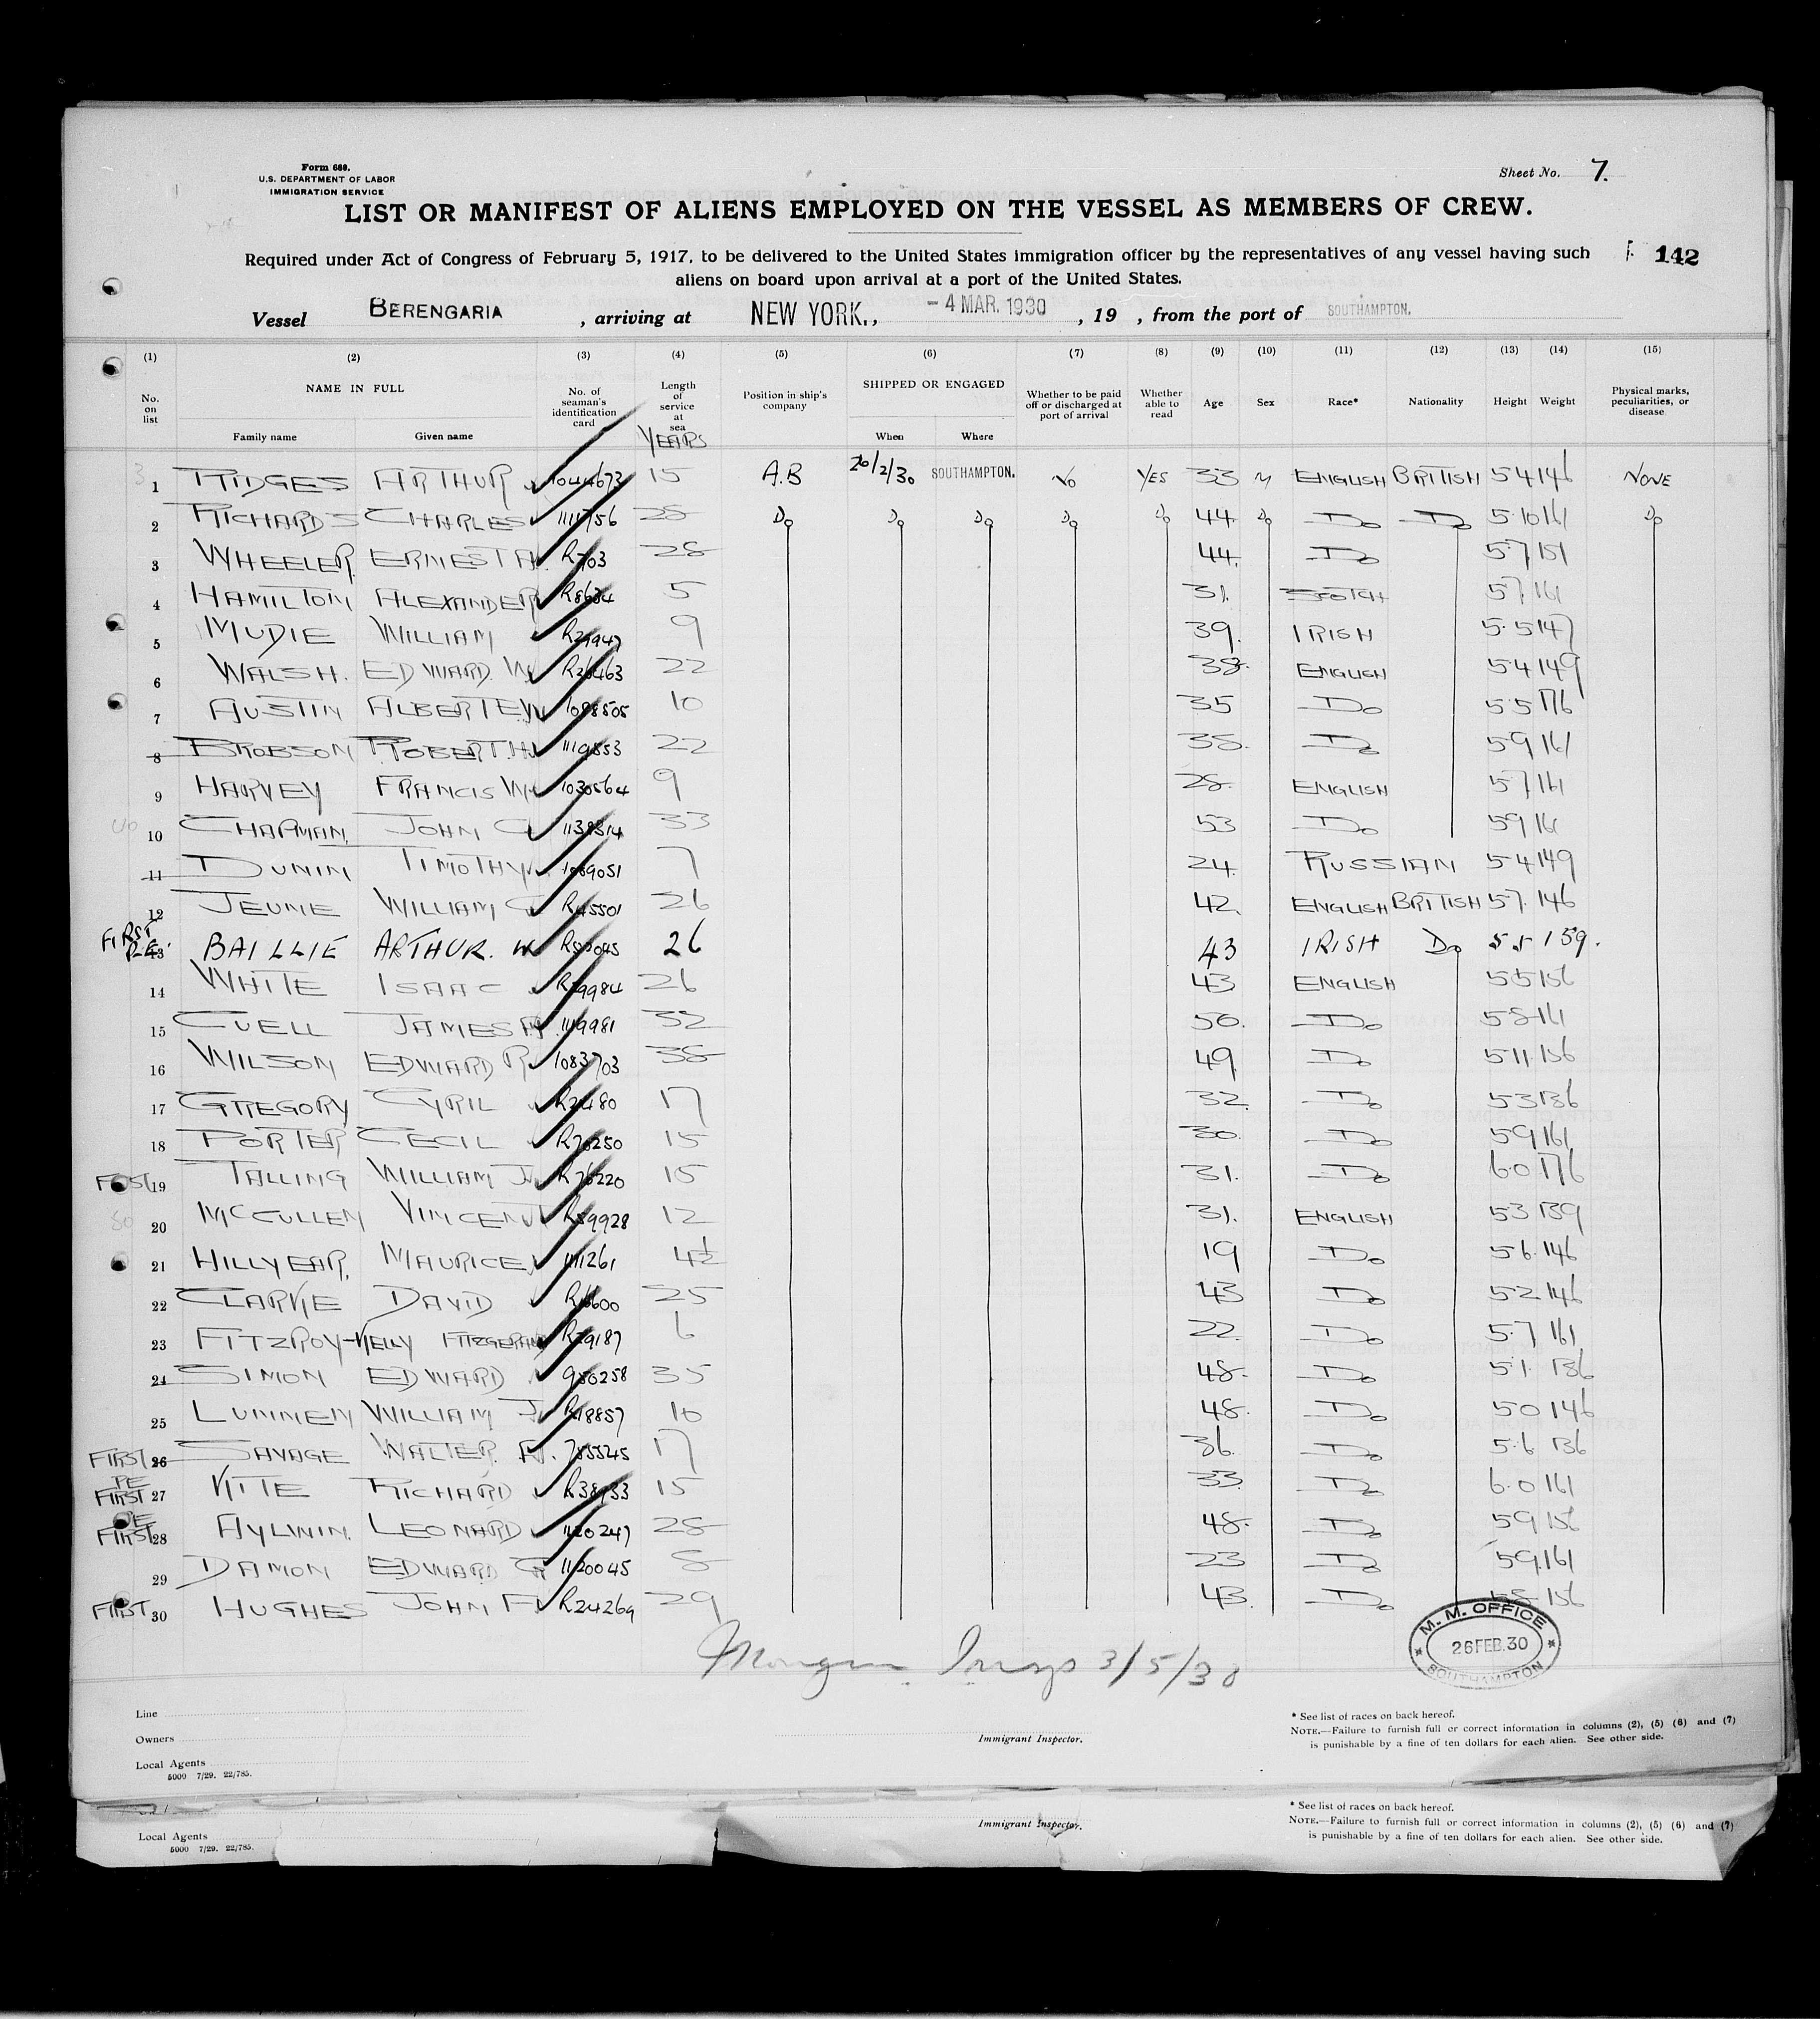 Form 680.
U.S. DEPARTMENT OF LABOR
IMMIGRATION SERVICE
Sheet No. 7.
LIST OR MANIFEST OF ALIENS EMPLOYED ON THE VESSEL AS MEMBERS OF CREW.
Required under Act of Congress of February 5, 1917, to be delivered to the United States immigration officer by the representatives of any vessel having such
aliens on board upon arrival at a port of the United States.
142
Vessel BERENGARIA, arriving at NEW YORK., - 4 MAR. 1930, 19 , from the port of SOUTHAMPTON.
(1) (2) (3) (4) (5) (6) (7) (8) (9) (10) (11) (12) (13) (14) (15)
No. on list NAME IN FULL Family name Given name No. of seaman's identification card Length of service at sea YEARS Position in ship's company SHIPPED OR ENGAGED When Where Whether to be paid off or discharged at port of arrival Whether able to read Age Sex Race* Nationality Height Weight Physical marks, peculiarities, or disease
1 RIDGES ARTHUR 1044673 15 A.B 26/2/30 SOUTHAMPTON. NO YES 33 M ENGLISH BRITISH 5 4 146 NONE
2 RICHARDS CHARLES 28 Do Do Do Do Do 44 Do Do Do 5 10 161 Do
3 WHEELER ERNEST A. R703 28 44 Do 5 7 151
4 HAMILTON ALEXANDER R8634 5 31. SCOTCH 5 7 161
5 MUDIE WILLIAM R29947 9 39. IRISH 5 5 147
6 WALSH. EDWARD. W R26463 22 38. ENGLISH 5 4 149
7 AUSTIN ALBERT E W 1098505 10 35 Do 5 5 176
8 BROBSON ROBERT H 1119853 22 38. Do 5 9 161
9 HARVEY FRANCIS W 1030564 9 28. ENGLISH 5 7 161
10 CHAPMAN JOHN C 1138314 33 53 Do 5 9 161
11 DUNIN TIMOTHY 1069051 7 24. RUSSIAN 5 4 149
12 JEUNE WILLIAM R45501 26 42. ENGLISH BRITISH 5 7. 146
FIRST
13 BAILLIE ARTHUR. W 26 43 IRISH Do 5 5 159.
14 WHITE ISAAC R79984 26 43 ENGLISH 5 5 156
15 CUELL JAMES 1119981 32 50. Do 5 8 161
16 WILSON EDWARD R 1083703 38 49 Do 5 11 156
17 GREGORY CYRIL R2480 17 32 Do 5 3 136
18 PORTER CECIL R76250 15 30. Do 5 9 161
19 TALLING WILLIAM J R76220 15 31. Do 6.0 176
20 MCCULLEN VINCENT R59928 12 31. ENGLISH 5 3 139
21 HILLYEAR. MAURICE 1111261 4½ 19 Do 5 6. 146
22 CLARKE DAVID 25 43 Do 5 2 146
23 FITZROY-KELLY FITZGERALD R79187 6 22. Do 5.7 161
24 SIMON EDWARD 986258 35 48. Do 5.1. 136
25 LUMMEN WILLIAM J R18857 10 48. Do 5 0 146
FIRST 26 SAVAGE WALTER. 17 36. Do 5.6 136
FIRST 27 KITTE RICHARD 15 33. Do 6.0 161
FIRST 28 AYLWIN. LEONARD 1120247 28 48. Do 5 9 156
29 DAMON EDWARD G 1120045 8 23 Do 5 9. 161
FIRST 30 HUGHES JOHN R24269 29 43. Do 5 8 156
3/5/30
M. M. OFFICE
26 FEB. 30
SOUTHAMPTON
Line
Owners
Local Agents
5000 7/29. 22/785.
Immigrant Inspector.
* See list of races on back hereof.
NOTE.—Failure to furnish full or correct information in columns (2), (5) (6) and (7)
is punishable by a fine of ten dollars for each alien. See other side.
Local Agents
5000 7/29. 22/785.
Immigrant Inspector.
* See list of races on back hereof.
NOTE.—Failure to furnish full or correct information in columns (2), (5) (6) and (7)
is punishable by a fine of ten dollars for each alien. See other side.